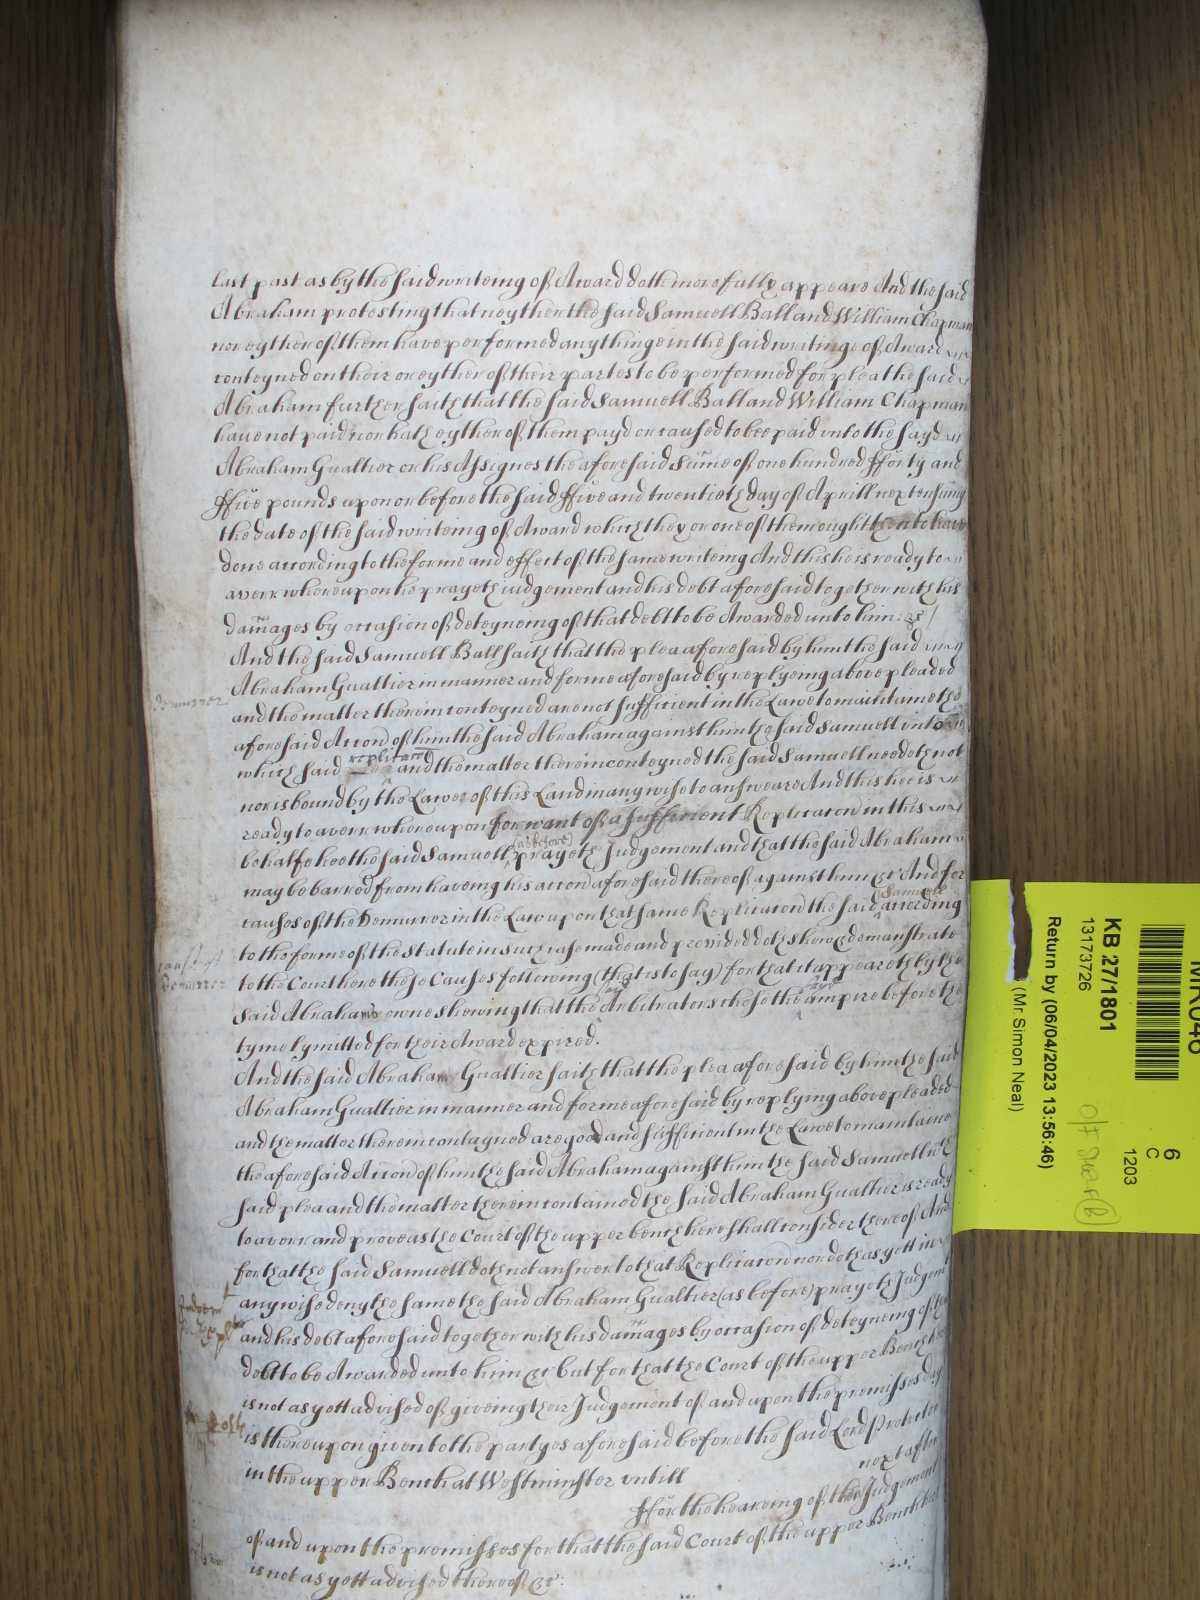 last past as by the said writeing of Award doth more fully appeare And the said
Abraham protesting that neyther the said Samuell Ball and William Chapman
nor eyther of them have performed any thinge in the said writinge of Award
conteyned on their or eyther of their partes to be performed for plea the said
Abraham further saith that the said Samuell Ball and William Chapman
have not paid nor hath eyther of them payd or caused to bee paid unto the sayd
Abraham Gualtier or his Assignes the aforesaid sume of one hundred fforty and
ffive pounds upon or before the said ffive and twentieth day of Aprill next ensuing
the date of the said writeing of Award which they or one of them ought then to have
done according to the forme and effect of the same writeing And this he is ready to
averr whereupon he prayeth iudgement and his debt aforesaid together with his
damages by occasion of deteyneing of that debt to be Awarded unto him &c /
And the said Samuell Ball saith that the plea aforesaid by him the said
Demurrer
Abraham Gualtier in manner and forme aforesaid by replyeing above pleaded
and the matter therein conteyned are not sufficient in the Lawe to maintaine the
aforesaid Accon of him the said Abraham against him the said Samuell unto
which said replicacon and the matter therein conteyned the said Samuell needeth not
nor is bound by the Lawes of this Land in any wise to answeare And this hee is
ready to averr whereupon for want of a sufficient Replicacon in this
behalfe hee the said Samuell (as before) prayeth Judgement and that the said Abraham
may be barred from haveing his accon aforesaid thereof against him &c And for
causes of the Demurrer in the Law upon that same Replicacon the said Samuell according
to the forme of the statute in such case made and provided doth shew & demonstrate
causes of demurrer
to the Court here these Causes following (that is to say) for that it appeareth by the
said Abrahams owne shewing that the Arbitrators chose the umpire before the
tyme lymitted for their Award expired.
And the said Abraham Gualtier saith that the plea aforesaid by him the said
Abraham Gualtier in manner and forme aforesaid by replying above pleaded
and the matter therein contayned are good and sufficient in the Lawe to maintaine
the aforesaid Accon of him the said Abraham against him the said Samuell wch
said plea and the matter therein contained the said Abraham Gualtier is ready
to averr and prove as the Court of the upper bench here shall consider thereof And
for that the said Samuell doth not answer to that Replicacon nor doth as yett in
any wise deny the same the said Abraham Gualtier (as before) prayeth Judgemt
and his debt aforesaid together with his damages by occasion of deteyneing of that
debt to be Awarded unto him &c but for that the Court of the upper Bench here
is not as yett advised of giveing their Judgement of and upon the premisses day
is thereupon given to the partyes aforesaid before the said Lord Protector
in the upper Bench at Westminster untill next after
ffor the heareing of their Judgement
of and upon the premisses for that the said Court of the upper Bench here
is not as yett advised thereof &c:
KB 27/1801
13173726
Return by (06/04/2023 13:56:46)
(Mr Simon Neal)
6
C
1203